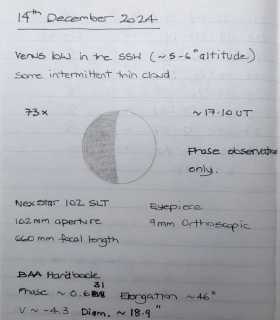 14th December 2024
Venus low in the SSW (~5-6° altitude)
Some intermittent thin cloud.
73x
~17.10 UT
Phase observation
only.
NexStar 102 SLT
Eyepiece
102mm aperture
9mm Orthoscopic
660mm focal length
BAA Handbook
Phase ~0.631
Elongation ~46°
V ~ -4.3 Diam. ~ 18.9"